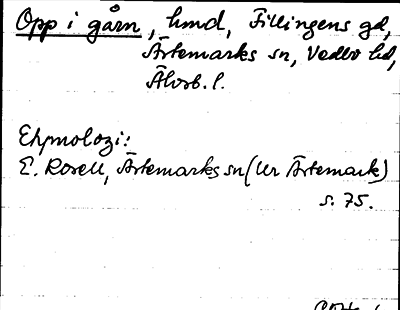 Opp i gårn, hmd, Fillingens gd,
Ärtemarks sn, Vedbo hd,
Älvsb. l.
Etymologi:
E. Rosell, Ärtemarks sn (Ur Ärtemark)
s. 75.